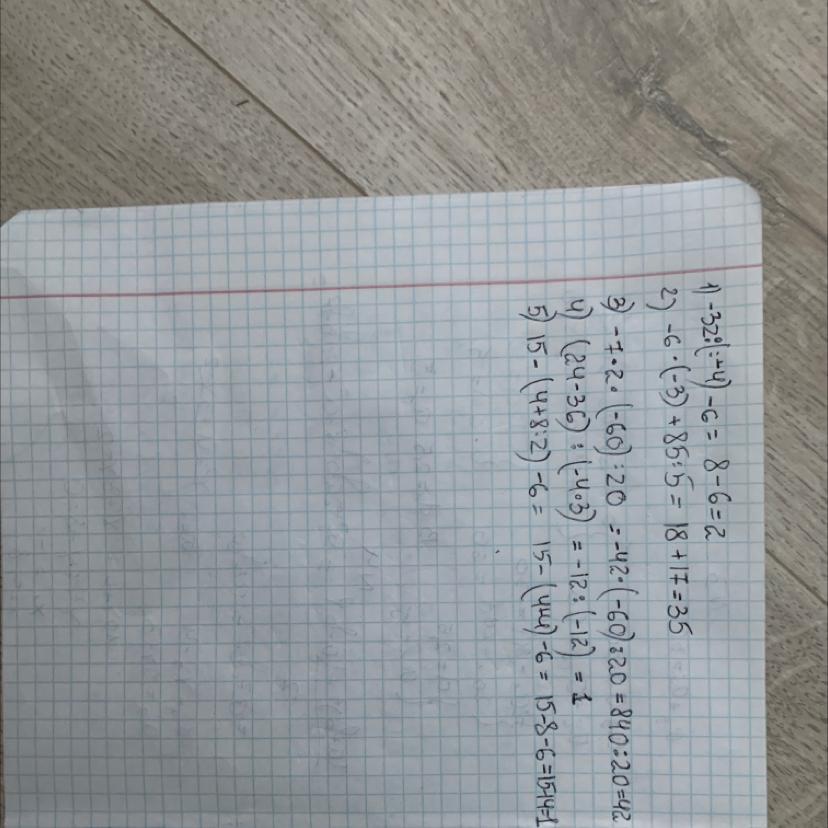 1) -32:(-4) -6 = 8-6=2
2) -6·(-3)+85:5= 18+17=35
3) -7·2·(-60):20 =-42·(-60):20=840:20=42
4) (24-36):(-4·3) = -12:(-12) = 1
5) 15-(4+8:2)-6= 15-(4+4)-6=15-8-6=15-14=1